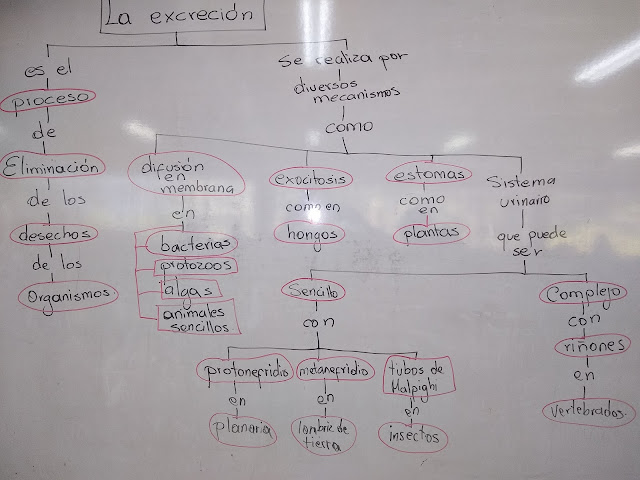 La excreción
es el
proceso
de
Eliminación
de los
desechos
de los
Organismos
Se realiza por
diversos
mecanismos
como
difusión
en
membrana
en
bacterias
protozoos
algas
animales
sencillos
exocitosis
como en
hongos
estomas
como
en
plantas
Sistema
urinario
que puede
ser
Sencillo
con
protonefridio
en
planaria
metanefridio
en
lombriz de
tierra
tubos de
Malpighi
en
insectos
Complejo
con
riñones
en
vertebrados.